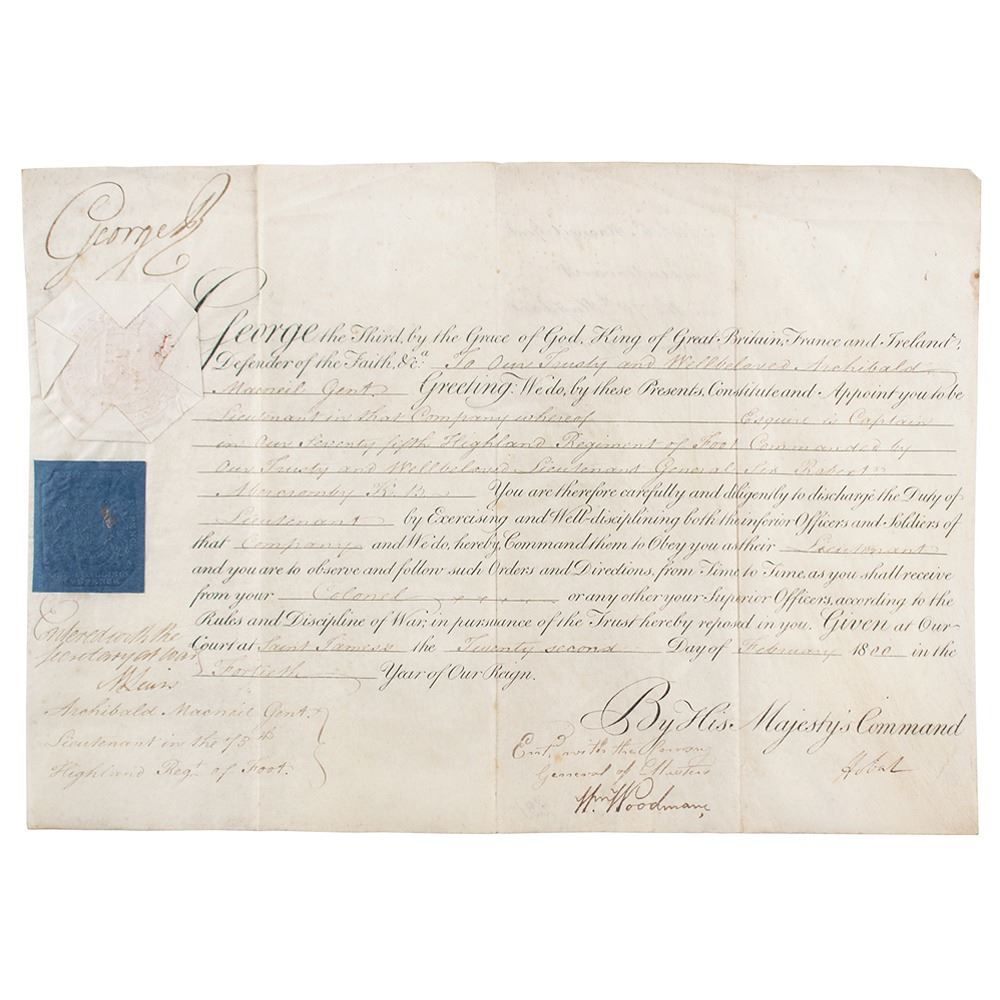 George R
George the Third, by the Grace of God, King of Great Britain, France and Ireland,
Defender of the Faith, &c.a To Our Trusty and Wellbeloved Archibald
Macneil Gent. Greeting: We do, by these Presents, Constitute and Appoint you to be
Lieutenant in that Company whereof Esquire is Captain
in Our Seventy fifth Highland Regiment of Foot Commanded by
Our Trusty and Wellbeloved Lieutenant General Sir Robert
Abercromby K. B. You are therefore carefully and diligently to discharge the Duty of
Lieutenant by Exercising and Well-disciplining both the inferior Officers and Soldiers of
that Company and We do, hereby, Command them to Obey you as their Lieutenant
and you are to observe and follow such Orders and Directions, from Time to Time, as you shall receive
from your Colonel or any other your Superior Officers, according to the
Rules and Discipline of War, in pursuance of the Trust hereby reposed in you. Given at Our
Court at Saint James's the Twenty second Day of February 1800 in the
Fortieth Year of Our Reign.
By His Majesty's Command
Entered with the
Secretary at War
M Lewis
Archibald Macneil Gent.
Lieutenant in the 75th
Highland Regt. of Foot.
Entd. with the
General of Musters
Wm Woodman,
Hobart